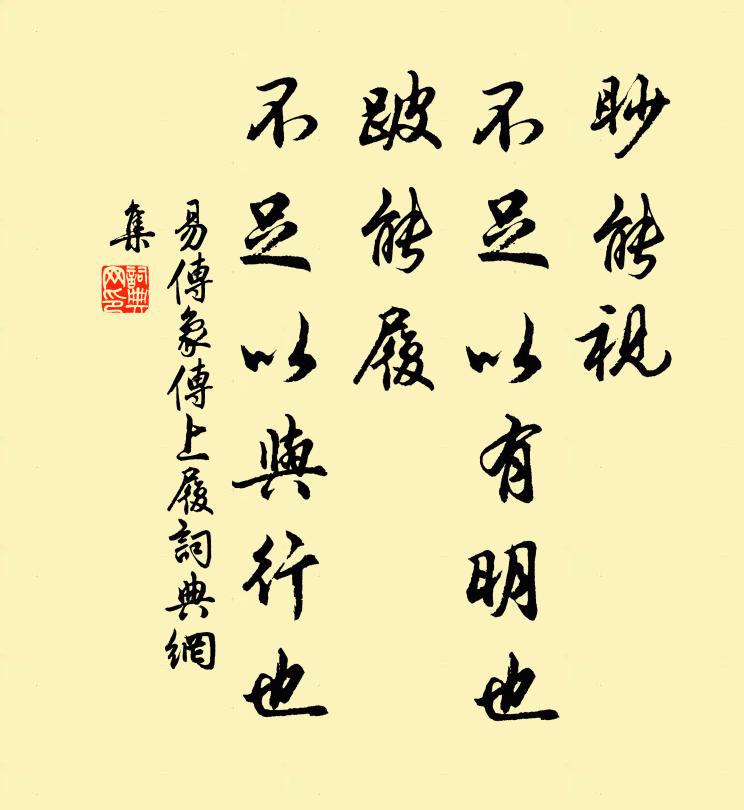 眇能視
不足以有明也
跛能履
不足以與行也
易傳象傳上履詞典網
集
詞典网印